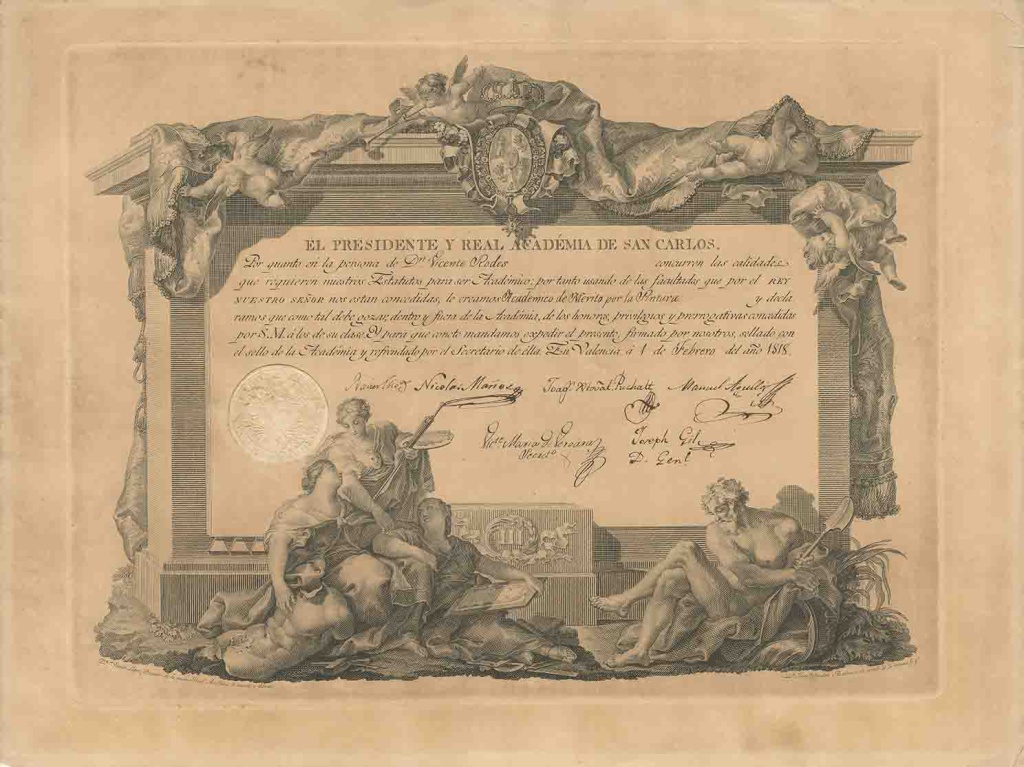 EL PRESIDENTE Y REAL ACADÉMIA DE SAN CARLOS.
Por quanto en la persona de Dn. Vicente Rodes concurren las calidades
que requieren nuestros Estatutos para ser Académico; por tanto usando de las facultades que por el REY
NUESTRO SEÑOR nos estan concedidas, le creamos Academico de Merito por la Pintura y decla
ramos que como tal debe gozar, dentro y fuera de la Académia, de los honores, privilegios y prerrogativas concedidas
por S.M. á los de su clase. Y para que conste mandamos expedir el presente, firmado por nosotros, sellado con
el sello de la Académia y refrendado por el Secretario de ella. En Valencia á 1 de Febrero del año 1818.
Nicolás Mañez
Manuel
Victe. Maria de Vergara
Secreto.
Joseph Gil
D. Genl.